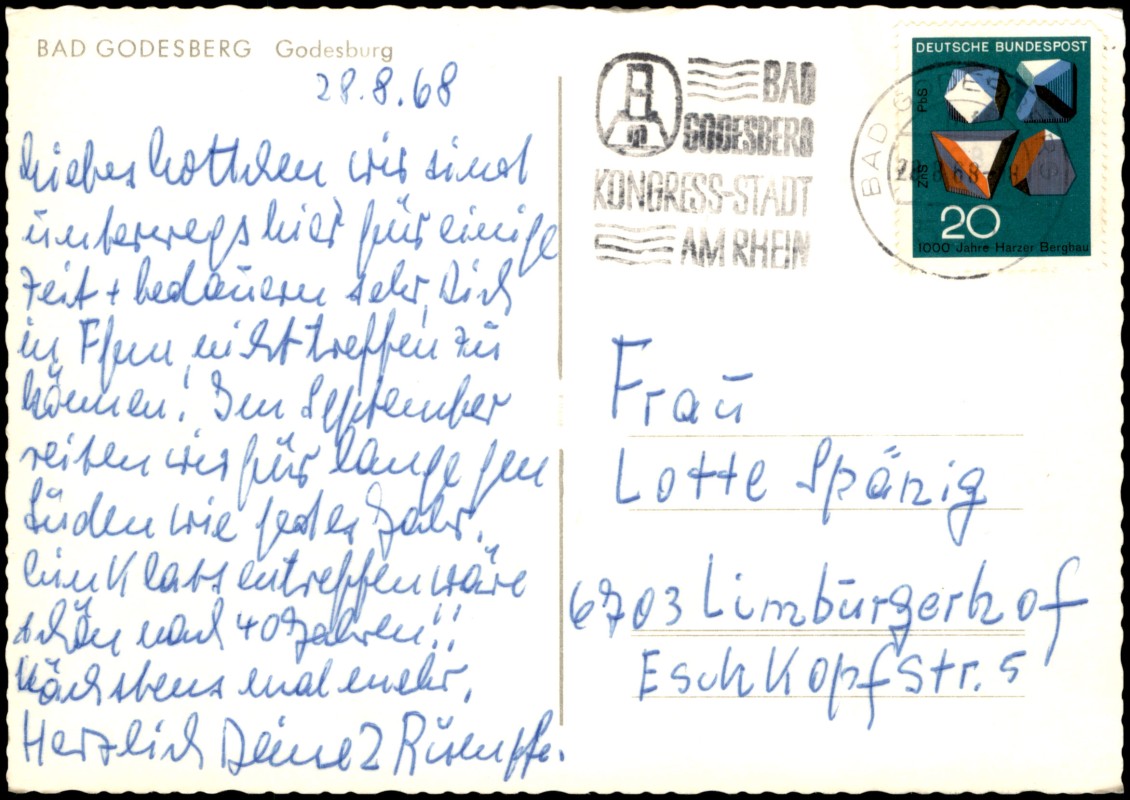 BAD GODESBERG Godesburg
28.8.68
Liebes Lottchen wir sind
unterwegs hier für einige
Zeit + bedauern sehr, Dich
in Ffm nicht treffen zu
können! Im September
reisen wir für lange gen
Süden wie jedes Jahr.
Ein Klassentreffen wäre
schön nach 40 Jahren!!
Nächstens mal mehr.
Herzlich Deine 2
BAD
GODESBERG
KONGRESS-STADT
AM RHEIN
BAD GODES
DEUTSCHE BUNDESPOST
PbS
ZnS
20
1000 Jahre Harzer Bergbau
Frau
Lotte Spänig
6703 Limburgerhof
Eschkopfstr. 5